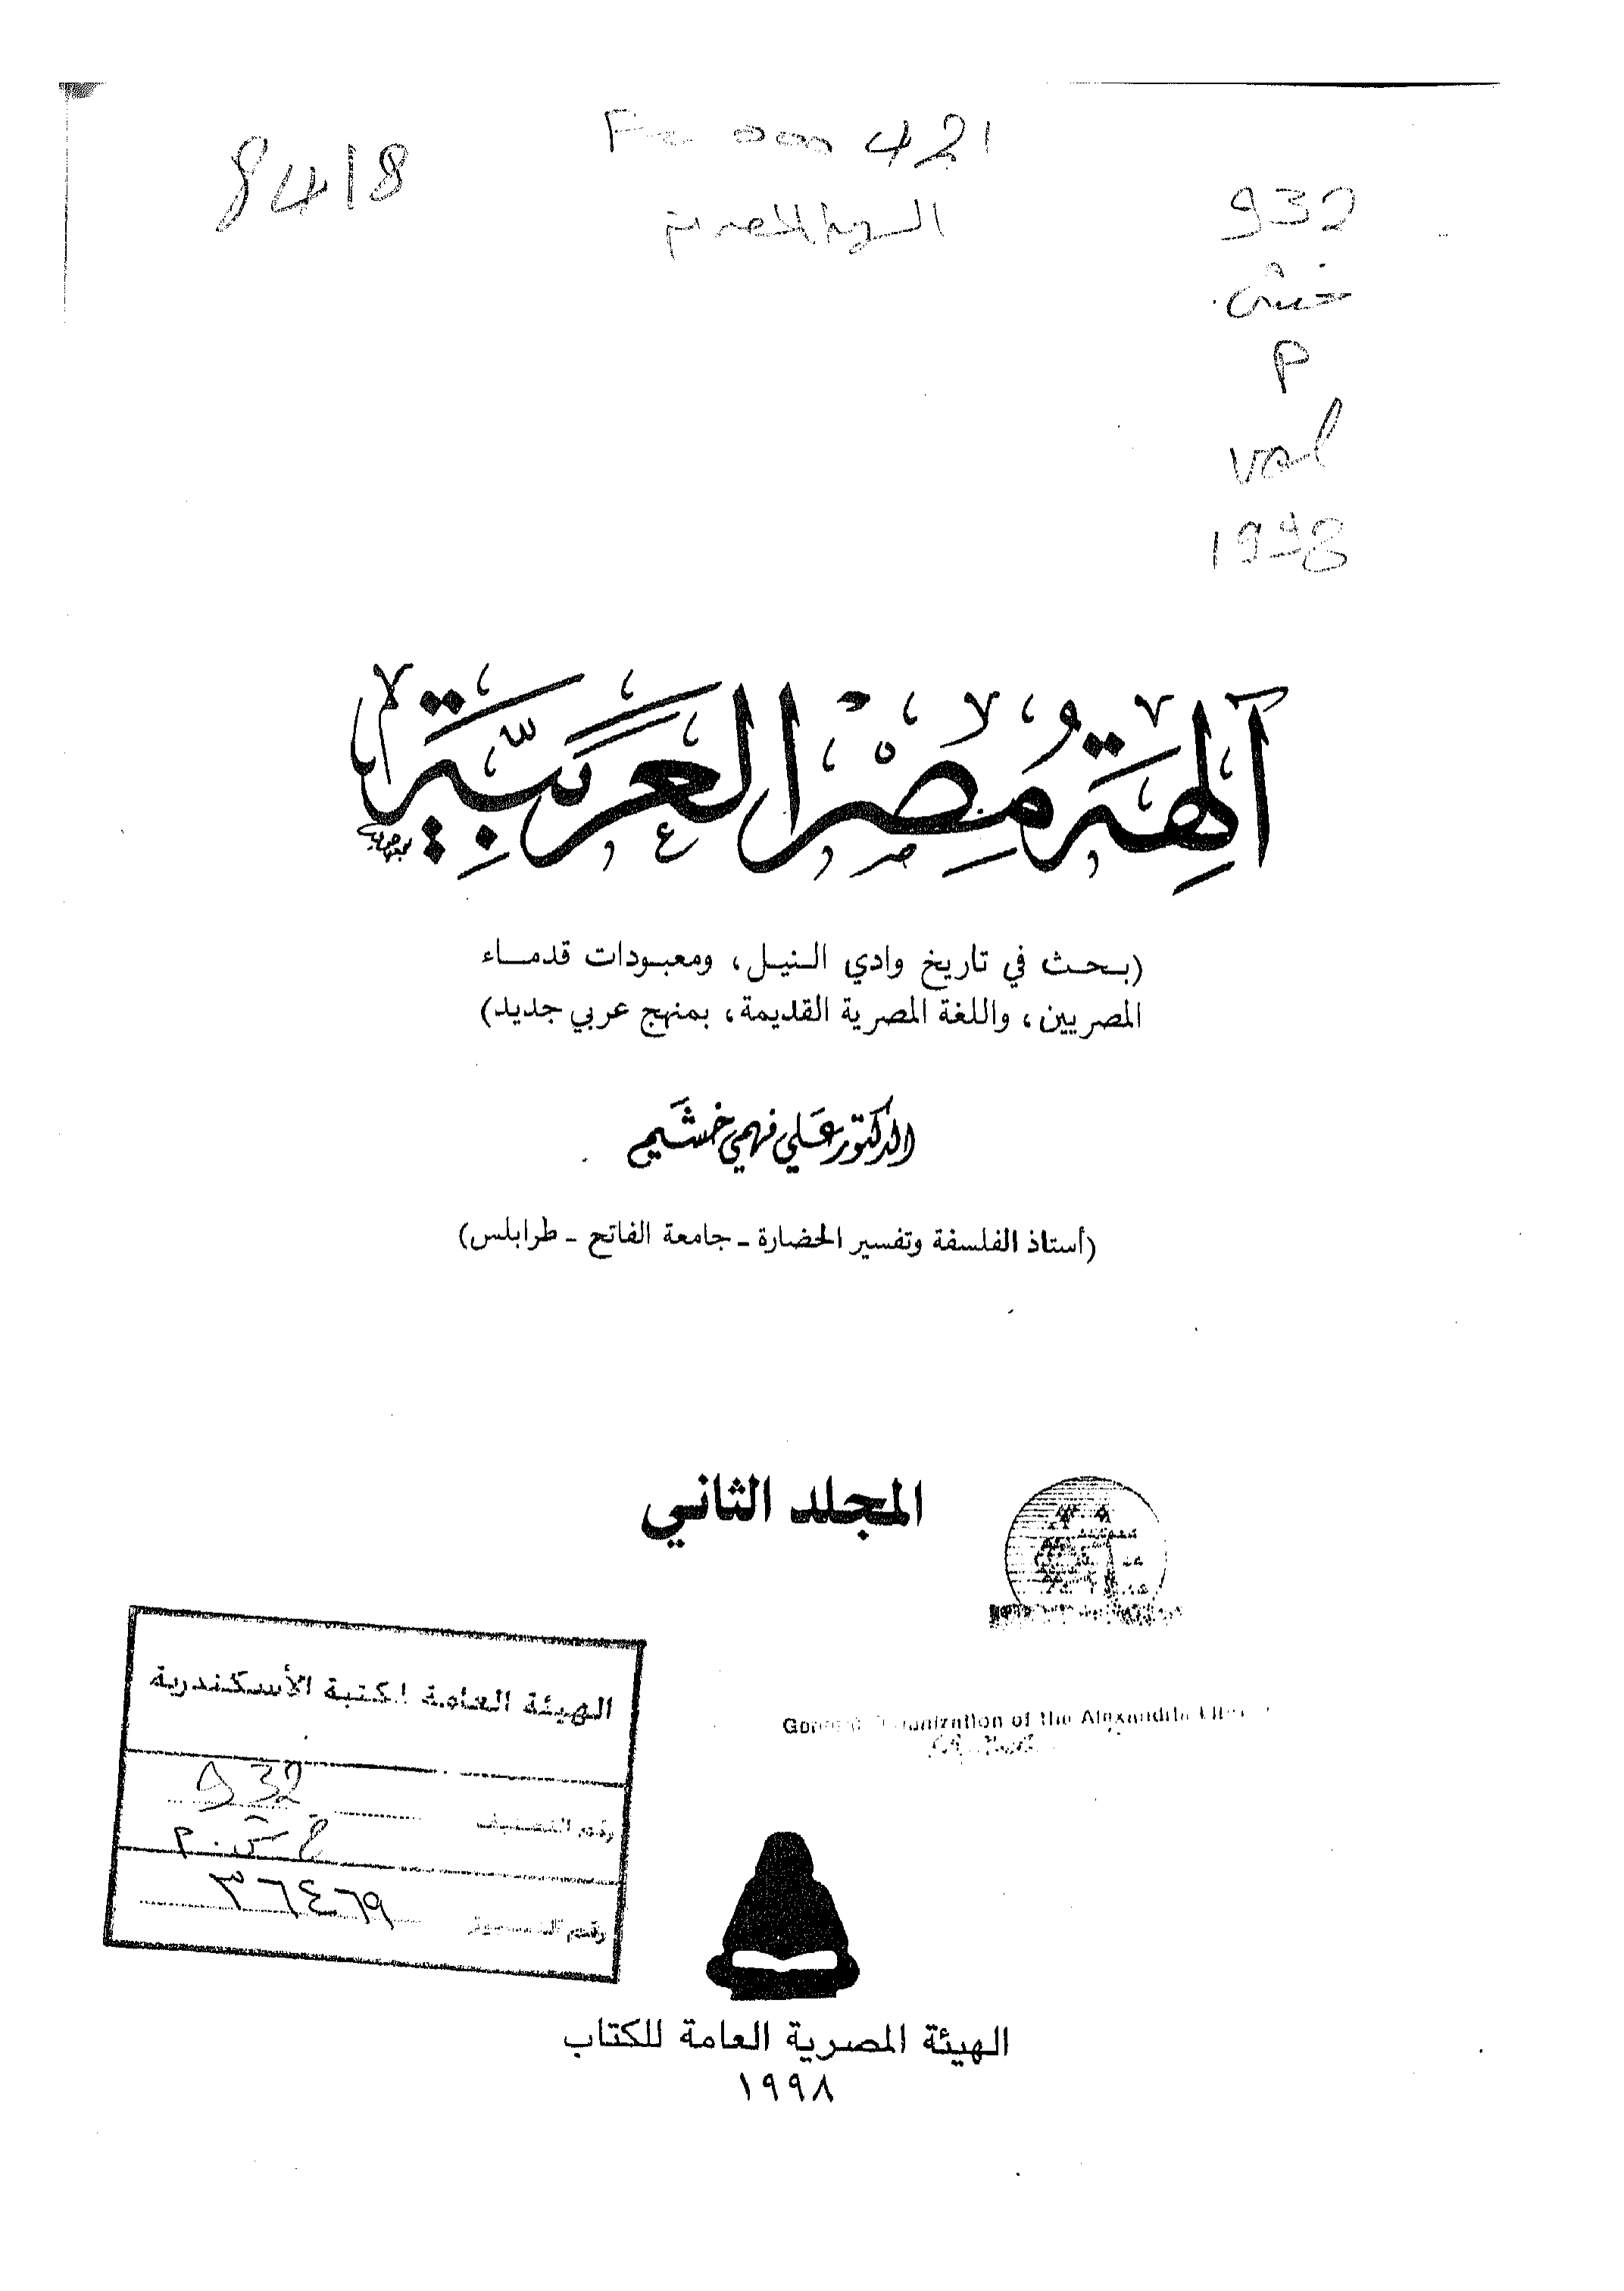 8418
421
932
خش
م
val
1998
آلهة مصر العربية
(بحث في تاريخ وادي النيل، ومعبودات قدماء
المصريين، واللغة المصرية القديمة، بمنهج عربي جديد)
الدكتور علي فهمي خشيم
(أستاذ الفلسفة وتفسير الحضارة - جامعة الفاتح - طرابلس)
المجلد الثاني
الهيئة العامة لكتبة الأسكندرية
رقم التصنيف 932
خ ش . م
رقم التسجيل ٣٦٤٦٩
Organization of the Alexandria
الهيئة المصرية العامة للكتاب
١٩٩٨